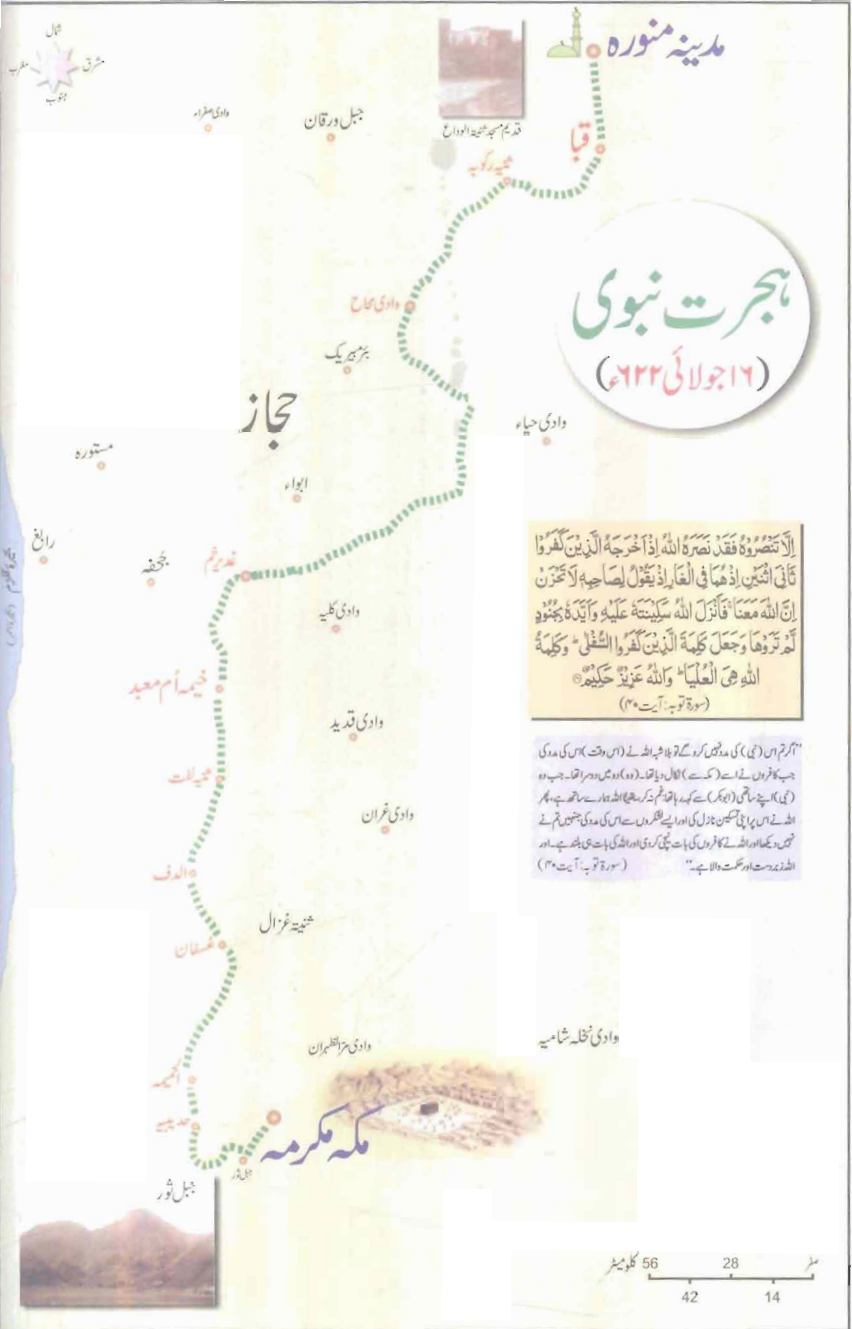 شمال
مشرق
مغرب
جنوب
مدینہ منورہ
قدیم مسجد ثنیۃ الوداع
قبا
ثنیہ رکوبہ
جبل ورقان
وادی صفراء
ہجرت نبوی
(۱۶ جولائی ۶۲۲ء)
وادی مجاح
بئر مبیریک
حجاز
وادی حیاء
مستورہ
ابواء
رابغ
جُحفہ
غدیر خم
وادی کلیہ
خیمہ اُم معبد
وادی قدید
ثنیہ لفت
وادی غران
الدف
ثنیتہ غزال
عسفان
وادی مر الظہران
وادی نخلہ شامیہ
حدیبیہ
جبل ثور
مکہ مکرمہ
جبل ثور
اِلَّا تَنْصُرُوْهُ فَقَدْ نَصَرَهُ اللّٰهُ اِذْ اَخْرَجَهُ الَّذِیْنَ كَفَرُوْا
ثَانِیَ اثْنَیْنِ اِذْ هُمَا فِی الْغَارِ اِذْ یَقُوْلُ لِصَاحِبِهٖ لَا تَحْزَنْ
اِنَّ اللّٰهَ مَعَنَا ۚ فَاَنْزَلَ اللّٰهُ سَكِیْنَتَهٗ عَلَیْهِ وَاَیَّدَهٗ بِجُنُوْدٍ
لَّمْ تَرَوْهَا وَجَعَلَ كَلِمَةَ الَّذِیْنَ كَفَرُوا السُّفْلٰی ؕ وَكَلِمَةُ
اللّٰهِ هِیَ الْعُلْیَا ؕ وَاللّٰهُ عَزِیْزٌ حَكِیْمٌ ۝
(سورۃ توبہ: آیت ۴۰)
"اگر تم اس (نبی) کی مدد نہیں کرو گے تو بلاشبہ اللہ نے (اس وقت) اس کی مدد کی
جب کافروں نے اسے (مکہ سے) نکال دیا تھا۔ (وہ) دو میں دوسرا تھا۔ جب وہ
(نبی) اپنے ساتھی (ابوبکر) سے کہہ رہا تھا: غم نہ کر، یقیناً اللہ ہمارے ساتھ ہے، پھر
اللہ نے اس پر اپنی تسکین نازل کی اور ایسے لشکروں سے اس کی مدد کی جنہیں تم نے
نہیں دیکھا اور اللہ نے کافروں کی بات نیچی کر دی اور اللہ کی بات ہی بلند ہے۔ اور
اللہ زبردست اور حکمت والا ہے۔" (سورۃ توبہ: آیت ۴۰)
کلومیٹر 56 28 صفر
42 14